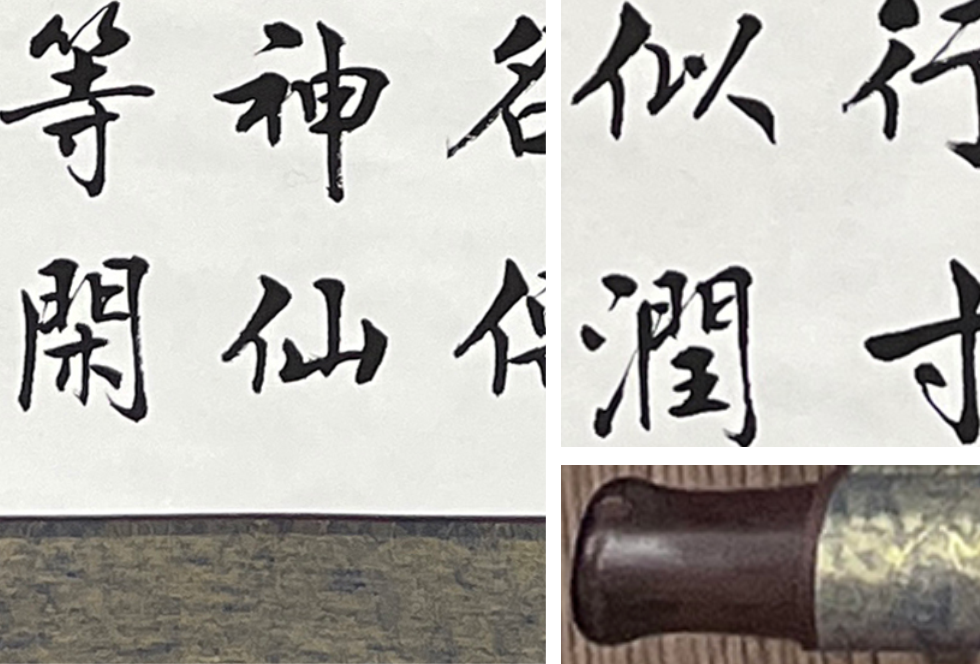 名
神仙
等閑
行寸
似潤